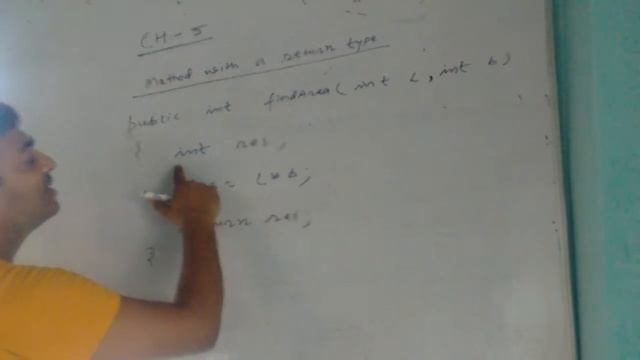 CH-5
Method with a return type
public int findArea( int L, int b)
{ int res;
= L*b;
res;
}